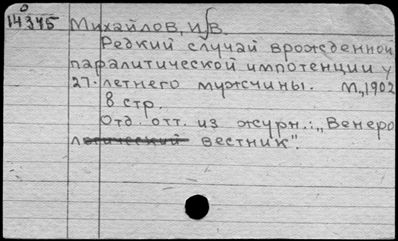 14345 Михайлов, И.В.
Редкий случай врожденной
паралитической импотенции у
27-летнего мужчины. М., 1902
8 стр.
Отд. отт. из журн.: „Венеро
логический вестник".